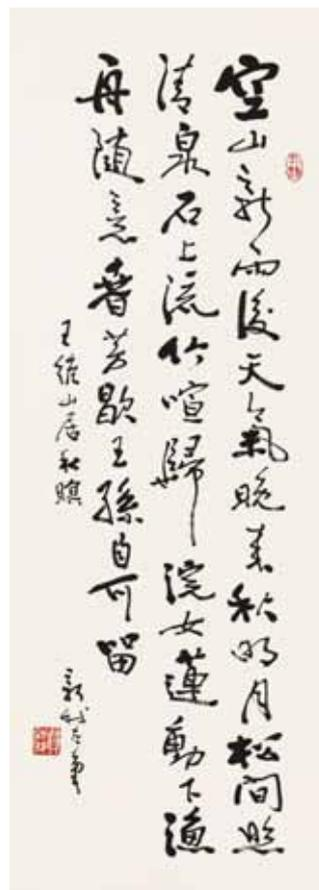 空山新雨後天氣晚来秋明月松間照
清泉石上流竹喧歸浣女蓮動下漁
舟随意春芳歇王孫自可留
王維山居秋暝
新我左筆